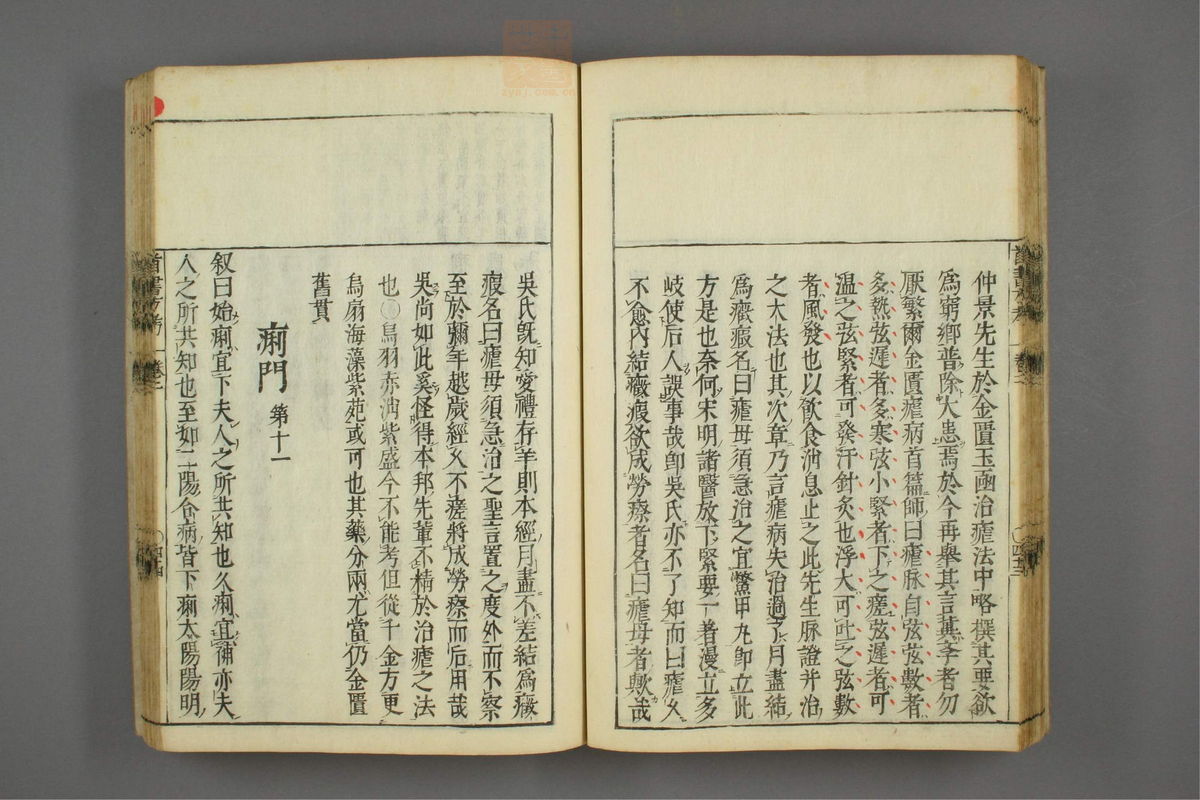 仲景先生於金匱玉函治瘧法中略撰其要欲
爲窮鄉普除大患焉於今再舉其言冀李者勿
厭繁爾金匱瘧病首篇師曰瘧脉自弦弦數者
多熱弦遲者多寒弦小緊者下之瘥弦遲者可
温之弦緊者可發汗針灸也浮大可吐之弦數
者風發也以飲食消息止之此先生脉證并治
之大法也其次章乃言瘧病失治過了月盡結
爲癥瘕名曰瘧母須急治之宜鱉甲丸卽立此
方是也奈何宋明諸醫放下緊要一著漫立多
岐使后人誤事哉卽吳氏亦不了知而曰瘧久
不愈內結癥瘕欲成勞瘵者名曰瘧母者歟哉
吳氏旣知愛禮存羊則本經月盡不差結爲癥
瘕名曰瘧母須急治之聖言置之度外而不察
至於彌年越歲經久不瘥將成勞瘵而后用哉
吳尚如此奚怪得本邦先輩不精於治瘧之法
也○烏羽赤消紫盛今不能考但從千金方更
烏扇海藻紫菀或可也其藥分兩尤當仍金匱
舊貫
痢門 第十一
叙曰始痢宜下夫人之所共知也久痢宜補亦夫
人之所共知也至如二陽合病皆下痢太陽陽明
四十三
四十四
zysj.com.cn